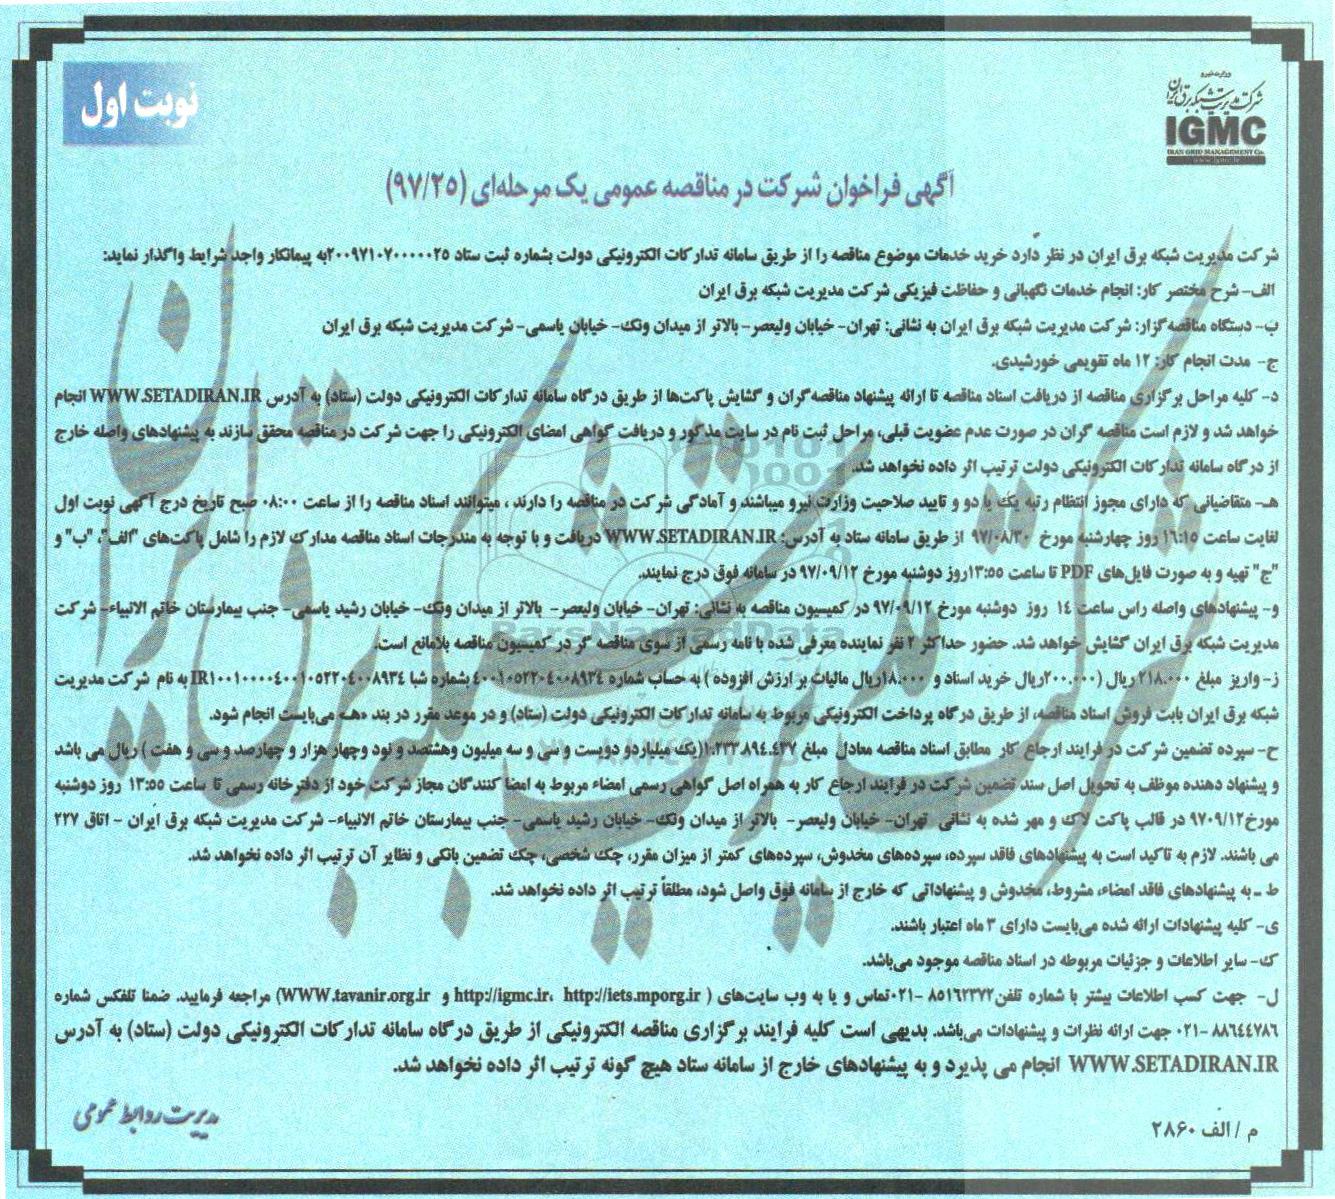 وزارت نیرو
شرکت مدیریت شبکه برق ایران
IGMC
IRAN GRID MANAGEMENT Co.
www.igmc.ir
نوبت اول
آگهی فراخوان شرکت در مناقصه عمومی یک مرحله‌ای (۹۷/۲۵)
شرکت مدیریت شبکه برق ایران در نظر دارد خرید خدمات موضوع مناقصه را از طریق سامانه تدارکات الکترونیکی دولت بشماره ثبت ستاد ۲۰۰۹۷۱۰۷۰۰۰۰۰۲۵به پیمانکار واجد شرایط واگذار نماید:
الف- شرح مختصر کار: انجام خدمات نگهبانی و حفاظت فیزیکی شرکت مدیریت شبکه برق ایران
ب- دستگاه مناقصه‌گزار: شرکت مدیریت شبکه برق ایران به نشانی: تهران- خیابان ولیعصر- بالاتر از میدان ونک- خیابان یاسمی- شرکت مدیریت شبکه برق ایران
ج- مدت انجام کار: ۱۲ ماه تقویمی خورشیدی.
د- کلیه مراحل برگزاری مناقصه از دریافت اسناد مناقصه تا ارائه پیشنهاد مناقصه‌گران و گشایش پاکت‌ها از طریق درگاه سامانه تدارکات الکترونیکی دولت (ستاد) به آدرس WWW.SETADIRAN.IR انجام
خواهد شد و لازم است مناقصه گران در صورت عدم عضویت قبلی، مراحل ثبت نام در سایت مذکور و دریافت گواهی امضای الکترونیکی را جهت شرکت در مناقصه محقق سازند به پیشنهادهای واصله خارج
از درگاه سامانه تدارکات الکترونیکی دولت ترتیب اثر داده نخواهد شد.
هـ- متقاضیانی که دارای مجوز انتظام رتبه یک یا دو و تایید صلاحیت وزارت نیرو میباشند و آمادگی شرکت در مناقصه را دارند ، میتوانند اسناد مناقصه را از ساعت ۰۸:۰۰ صبح تاریخ درج آگهی نوبت اول
لغایت ساعت ۱۶:۱۵ روز چهارشنبه مورخ ۹۷/۰۸/۳۰ از طریق سامانه ستاد به آدرس: WWW.SETADIRAN.IR دریافت و با توجه به مندرجات اسناد مناقصه مدارک لازم را شامل پاکت‌های "الف"، "ب" و
"ج" تهیه و به صورت فایل‌های PDF تا ساعت ۱۳:۵۵روز دوشنبه مورخ ۹۷/۰۹/۱۲ در سامانه فوق درج نمایند.
و- پیشنهادهای واصله راس ساعت ۱۴ روز دوشنبه مورخ ۹۷/۰۹/۱۲ در کمیسیون مناقصه به نشانی: تهران- خیابان ولیعصر- بالاتر از میدان ونک- خیابان رشید یاسمی- جنب بیمارستان خاتم الانبیاء- شرکت
مدیریت شبکه برق ایران گشایش خواهد شد. حضور حداکثر ۲ نفر نماینده معرفی شده با نامه رسمی از سوی مناقصه گر در کمیسیون مناقصه بلامانع است.
ز- واریز مبلغ ۲۱۸.۰۰۰ ریال (۲۰۰.۰۰۰ریال خرید اسناد و ۱۸.۰۰۰ریال مالیات بر ارزش افزوده ) به حساب شماره ۴۰۰۱۰۵۲۲۰۴۰۰۸۹۳۴ بشماره شبا IR۱۰۰۱۰۰۰۰۴۰۰۱۰۵۲۲۰۴۰۰۸۹۳۴ به نام شرکت مدیریت
شبکه برق ایران بابت فروش اسناد مناقصه، از طریق درگاه پرداخت الکترونیکی مربوط به سامانه تدارکات الکترونیکی دولت (ستاد) و در موعد مقرر در بند «هـ» می‌بایست انجام شود.
ح- سپرده تضمین شرکت در فرایند ارجاع کار مطابق اسناد مناقصه معادل مبلغ ۱.۲۳۳.۸۹۴.۴۳۷(یک میلیاردو دویست و سی و سه میلیون وهشتصد و نود وچهار هزار و چهارصد و سی و هفت ) ریال می باشد
و پیشنهاد دهنده موظف به تحویل اصل سند تضمین شرکت در فرایند ارجاع کار به همراه اصل گواهی رسمی امضاء مربوط به امضا کنندگان مجاز شرکت خود از دفترخانه رسمی تا ساعت ۱۳:۵۵ روز دوشنبه
مورخ۹۷۰۹/۱۲ در قالب پاکت لاک و مهر شده به نشانی تهران- خیابان ولیعصر- بالاتر از میدان ونک- خیابان رشید یاسمی- جنب بیمارستان خاتم الانبیاء- شرکت مدیریت شبکه برق ایران - اتاق ۲۲۷
می باشند. لازم به تاکید است به پیشنهادهای فاقد سپرده، سپرده‌های مخدوش، سپرده‌های کمتر از میزان مقرر، چک شخصی، چک تضمین بانکی و نظایر آن ترتیب اثر داده نخواهد شد.
ط - به پیشنهادهای فاقد امضاء، مشروط، مخدوش و پیشنهاداتی که خارج از سامانه فوق واصل شود، مطلقاً ترتیب اثر داده نخواهد شد.
ی- کلیه پیشنهادات ارائه شده می‌بایست دارای ۳ ماه اعتبار باشند.
ک- سایر اطلاعات و جزئیات مربوطه در اسناد مناقصه موجود می‌باشد.
ل- جهت کسب اطلاعات بیشتر با شماره تلفن۸۵۱۶۲۳۷۲ -۰۲۱تماس و یا به وب سایت‌های ( http://igmc.ir، http://iets.mporg.ir و WWW.tavanir.org.ir) مراجعه فرمایید. ضمنا تلفکس شماره
۸۸۶۴۴۷۸۶ -۰۲۱ جهت ارائه نظرات و پیشنهادات می‌باشد. بدیهی است کلیه فرایند برگزاری مناقصه الکترونیکی از طریق درگاه سامانه تدارکات الکترونیکی دولت (ستاد) به آدرس
WWW.SETADIRAN.IR انجام می پذیرد و به پیشنهادهای خارج از سامانه ستاد هیچ گونه ترتیب اثر داده نخواهد شد.
مدیریت روابط عمومی
م / الف ۲۸۶۰
ParsNamadData